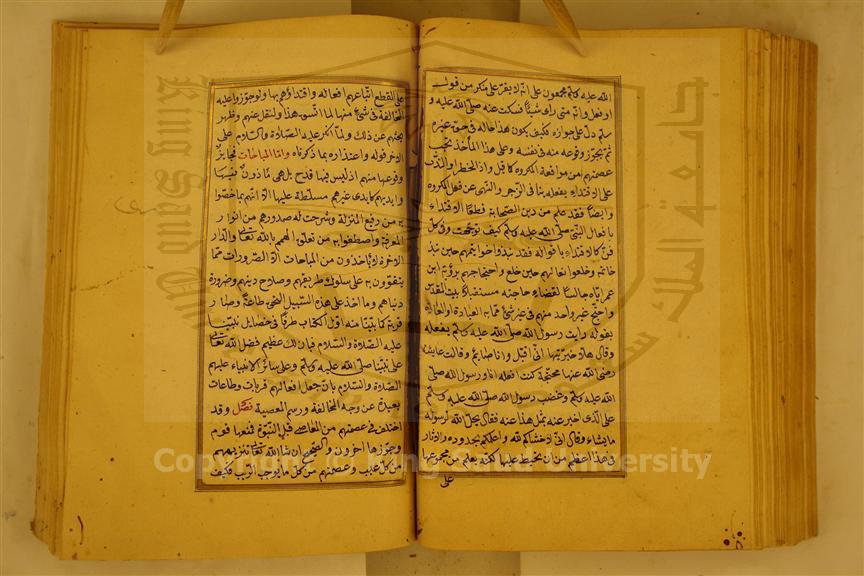 الله عليه وسلم مجمعون على انه لا يقر على منكر من قول
او فعل وانه متى راى شيئا فسكت عنه صلى الله عليه و
سلم دل على جوازه فكيف يكون هذا حاله فى حق غيره
ثم يجوز وقوعه منه فى نفسه وعلى هذا المأخذ تجب
عصمتهم من مواقعة المكروه كما قيل واذ الحظر او الندب
على الاقتداء بفعله ينافى الزجر والنهى عن فعل المكروه
وايضا فقد علم من دين الصحابة قطعا الاقتداء
بافعال النبى صلى الله عليه وسلم كيف توجهت وفى كل
فن كالاقتداء باقواله فقد نبذوا خواتمهم حين نبذ
خاتمه وخلعوا نعالهم حين خلع واحتجاجهم برؤية ابن
عمر اياه جالسا لقضاء حاجته مستقبلا بيت المقدس
واحتج غير واحد منهم فى غير شئ مما بابه العبادة او العادة
بقوله رايت رسول الله صلى الله عليه وسلم يفعله
وقال هلا خبرتيها انى اقبل وانا صائم وقالت عايشة
رضى الله عنها محتجة كنت افعله انا ورسول الله صلى
الله عليه وسلم وغضب رسول الله صلى الله عليه وسلم
على الذى اخبر عنه بمثل هذا عنه فقال يحل الله لرسوله
ما يشاء وقال انى لاخشاكم لله واعلمكم بحدوده والاثار
فى هذا اعظم من ان نحيط عليها لكنه يعلم من مجموعها
على
على القطع اتباعهم افعاله واقتداؤهم بها ولو جوزوا عليه
المخالفة فى شئ منها لما اتسق هذا ولنقل عنهم وظهر
بحثهم عن ذلك ولما انكر عليه الصلاة والسلام على
الاخر قوله واعتذاره بما ذكرناه واما المباحات فجايز
وقوعها منهم اذ ليس فيها قدح بل هى مأذون فيها
وايديهم كايدى غيرهم مسلطة عليها الا انهم بما خصوا
به من رفيع المنزلة وشرحت له صدورهم من انوار
المعرفة واصطفوا به من تعلق الهمم بالله تعالى والدار
الاخرة لا يأخذون من المباحات الا الضرورات مما
يتقوون به على سلوك طريقهم وصلاح دينهم وضرورة
دنياهم وما اخذ على هذه السبيل التحق طاعة وصار
قربة كما بينا منه اول الكتاب طرفا فى خصال نبينا
عليه الصلاة والسلام فبان لك عظيم فضل الله تعالى
على نبينا صلى الله عليه وسلم وعلى سائر الانبياء عليهم
الصلاة والسلام بان جعل افعالهم قربات وطاعات
بعيدة عن وجه المخالفة ورسم المعصية فصل وقد
اختلف فى عصمتهم من المعاصى قبل النبوة فمنعها قوم
وجوزها اخرون والصحيح ان شا الله تعالى تنزيههم
من كل عيب وعصمتهم من كل ما يوجب الريب فكيف
King Saud University
جامعة الملك سعود
Copyright © King Saud University